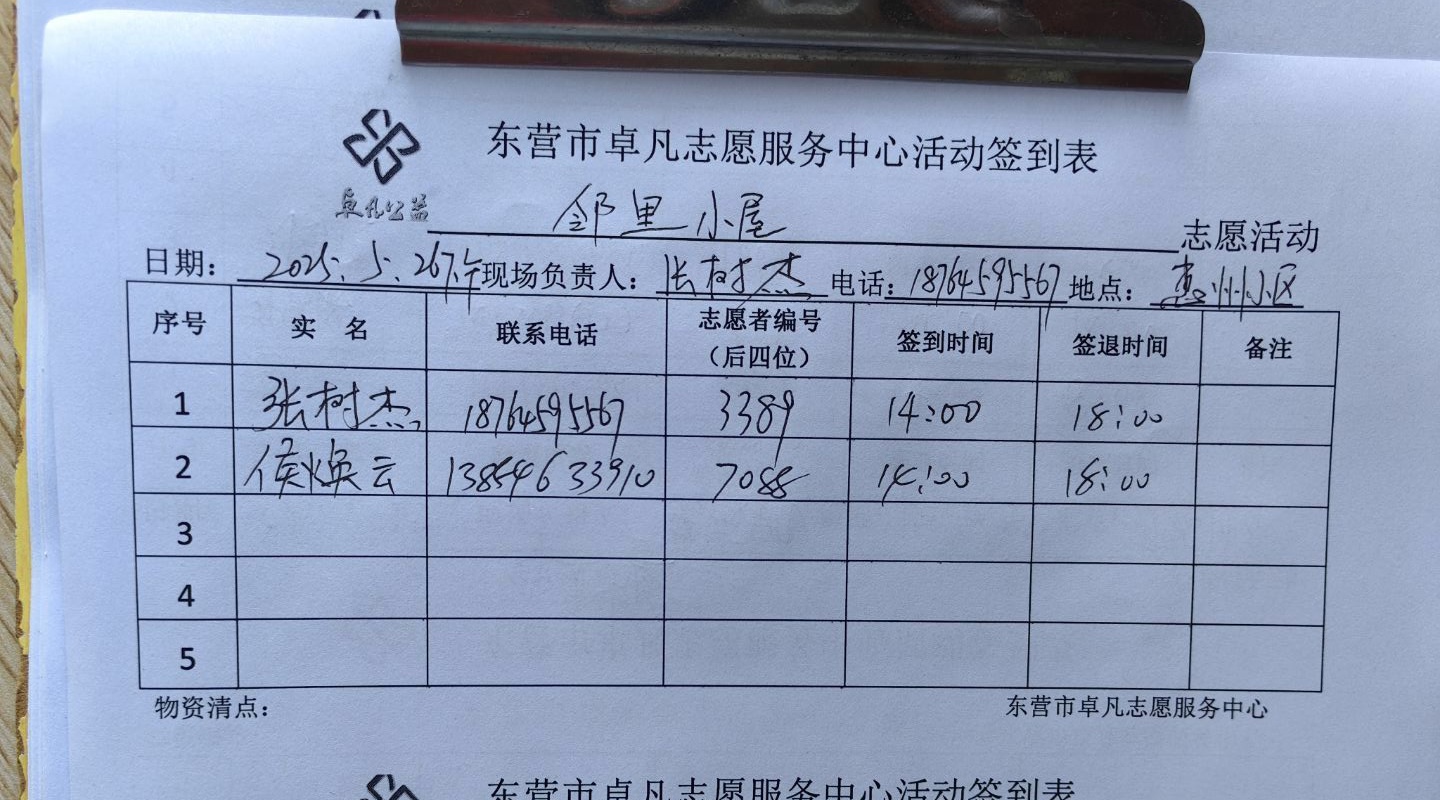 东营市卓凡志愿服务中心活动签到表
卓凡公益
邻里小屋 志愿活动
日期: 2025.5.26下午 现场负责人: 张树杰 电话: 18764595567 地点: 惠州小区
序号 实 名 联系电话 志愿者编号（后四位） 签到时间 签退时间 备注
1 张树杰 18764595567 3389 14:00 18:00
2 侯焕云 13854633910 7088 14:00 18:00
3
4
5
物资清点: 东营市卓凡志愿服务中心
东营市卓凡志愿服务中心活动签到表